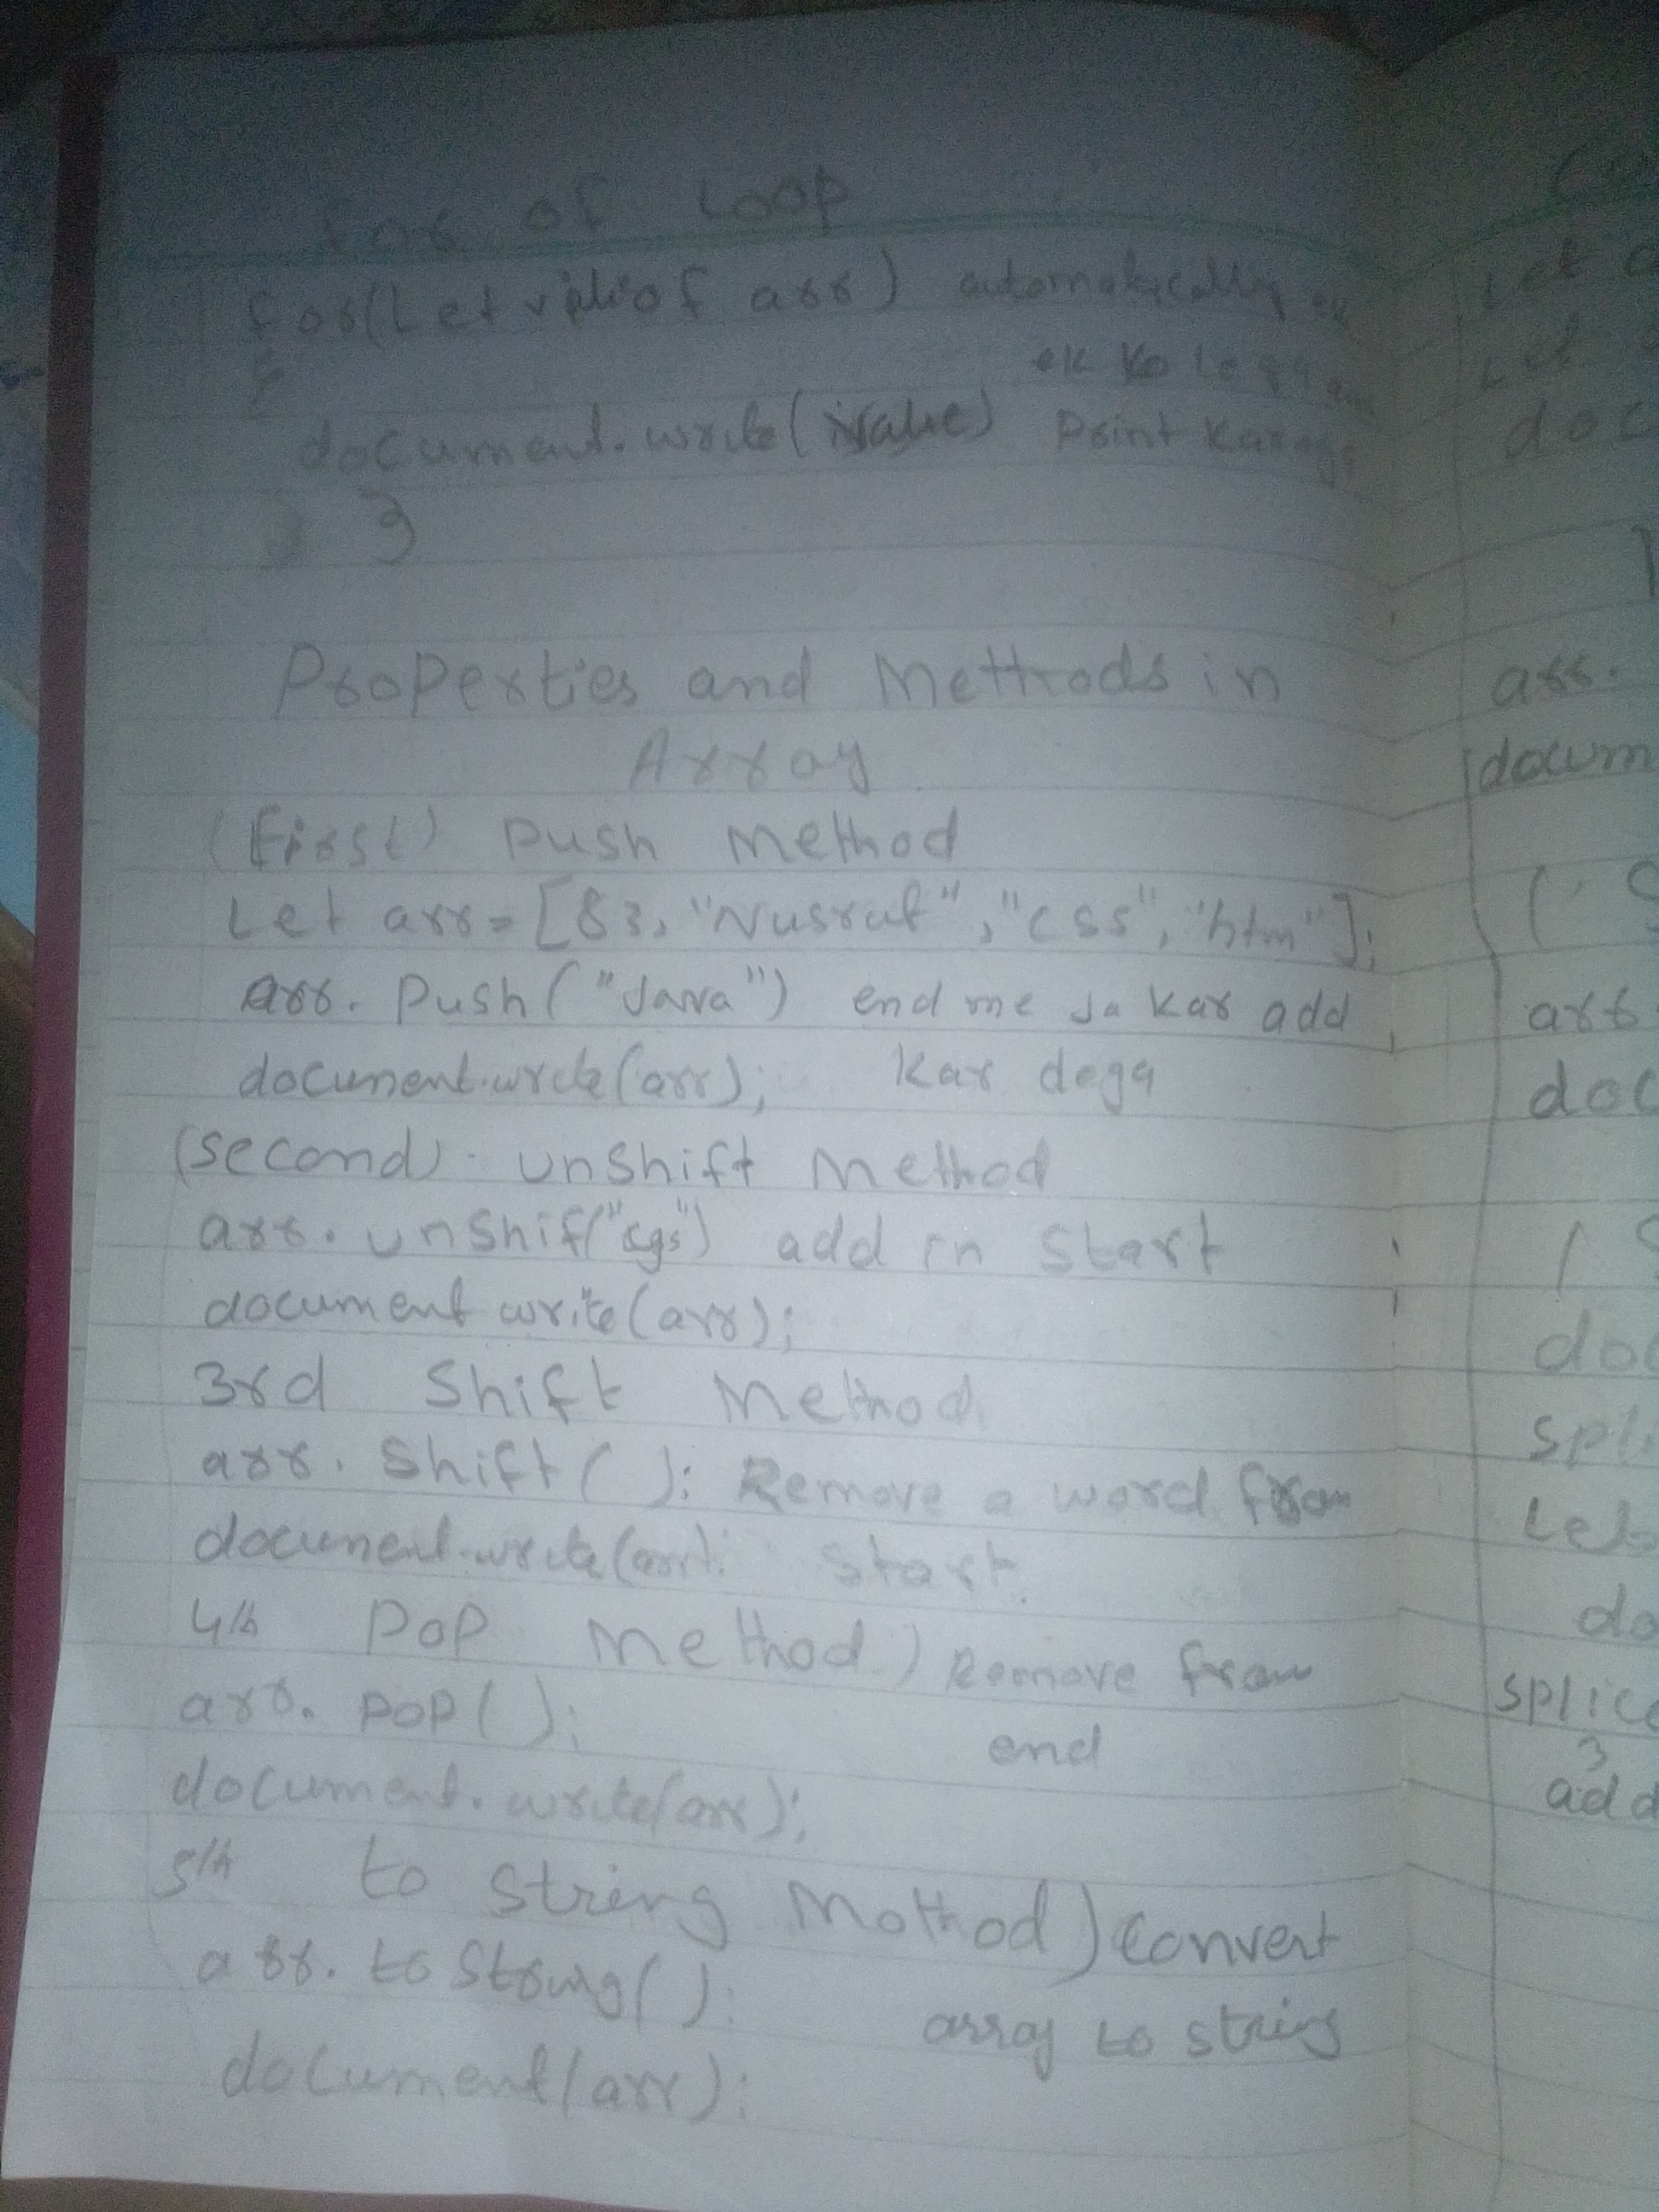 for of Loop
for(Let value of arr) automatically ek
{ ek ko lega
document.write(value) Print Karega
}
Properties and Methods in
Array
(First) Push Method
Let arr=[83, "Nusrat", "css", "htm"];
arr. Push("Java") end me Ja Kar add
document.write(arr); Kar dega
(second) unshift Method
arr. unshif(" ") add in Start
document write(arr);
3rd Shift Method
arr. Shift( ); Remove a word from
document.write(arr); Start
4th POP Method) Remove from
arr. POP( ); end
document.write(arr);
5th to string Method) Convert
arr. to String( ); array to string
document(arr);
Let
Let
doc
arr.
docum
arr
doc
doc
spli
Let
do
splice
3
add